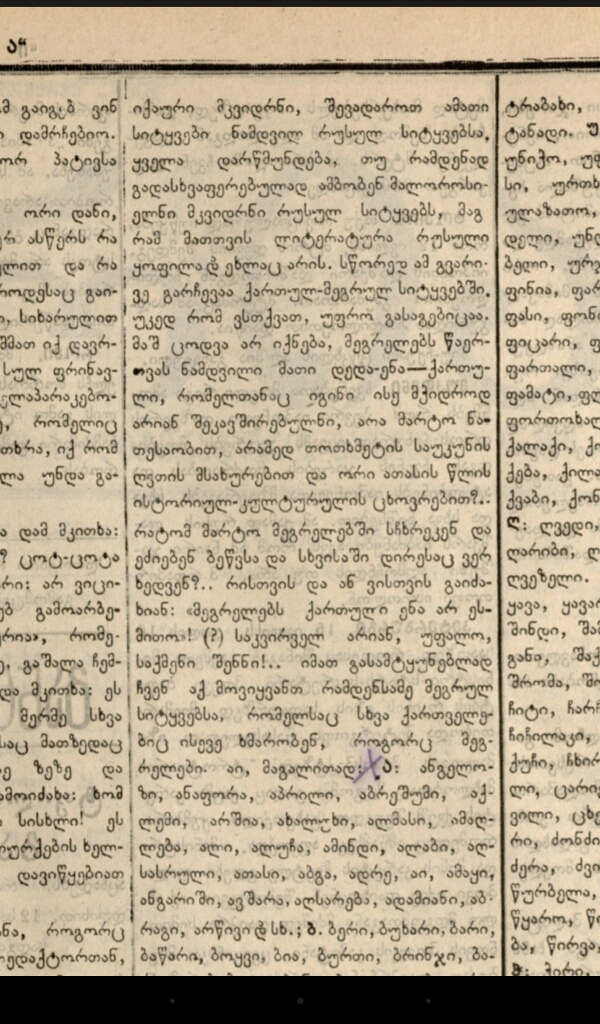 ა“
მ გაიგებ ვინ
დამრჩებიო.
ორ პატივსა
ორი დანი,
ასწერს რა
ელით და რა
როდესაც გაი-
სიხარულით
შმათ იქ დავრ-
სულ ფრინავ-
ელაპარაკებო-
რომელიც
თხრა, იქ რომ
ლა უნდა გა-
ა დამ მკითხა:
? ცოტ-ცოტა
რი: არ ვიცი-
ებ გამოარბე-
რია», რომე-
ე, გაშალა ჩემ-
და მკითხა: ეს
მერმე სხვა
საც მათზედაც
ე ზეზე და
ამოიძახა: ხომ
სისხლი! ეს
იურქების ხელ-
დავიწყებიათ
ნა, როგორც
რედაქტორთან,
იქაური მკვიდრნი, შევადაროთ ამათი
სიტყვები ნამდვილ რუსულ სიტყვებსა,
ყველა დარწმუნდება, თუ რამდენად
გადასხვაფერებულად ამბობენ მალოროსი-
ელნი მკვიდრნი რუსულ სიტყვებს, მაგ
რამ მათთვის ლიტერატურა რუსული
ყოფილა და ეხლაც არის. სწორედ ამ გვარი-
ვე გარჩევაა ქართულ-მეგრულ სიტყვებში,
უკედ რომ ვსთქვათ, უფრო გასაგებიცაა.
მაშ ცოდვა არ იქნება, მეგრელებს წაერ-
თვას ნამდვილი მათი დედა-ენა—ქართუ-
ლი, რომელთანაც იგინი ისე მჭიდროდ
არიან შეკავშირებულნი, არა მარტო ნა-
თესაობით, არამედ თოთხმეტის საუკუნის
ღვთის მსახურებით და ორი ათასის წლის
ისტორიულ-კულტურულის ცხოვრებით?..
რატომ მარტო მეგრელებში სჩხრეკენ და
ეძიებენ ბეწვსა და სხვისაში დირესაც ვერ
ხედვენ?.. რისთვის და ან ვისთვის გაიძა-
ხიან: «მეგრელებს ქართული ენა არ ეს-
მითო»! (?) საკვირველ არიან, უფალო,
საქმენი შენნი!.. იმათ გასამტყუნებლად
ჩვენ აქ მოვიყვანთ რამდენსამე მეგრულ
სიტყვებსა, რომელსაც სხვა ქართველე-
ბიც ისევე ხმარობენ, როგორც მეგ-
რელები. აი, მაგალითად: ა: ანგელო-
ზი, ანაფორა, აპრილი, აბრეშუმი, აქ-
ლემი, არშია, ახალუხი, ალმასი, ამაღ-
ლება, ალი, ალუჩა, ამინდი, ალაბი, აღ-
სასრული, ათასი, აბგა, ადრე, აი, ამაყი,
ანგარიში, ავშარა, აღსარება, ადამიანი, აბ-
რაგი, არწივი და სხ.; ბ. ბერი, ბუხარი, ბარი,
ბაწარი, ბოყვი, ბია, ბურთი, ბრინჯი, ბა-
ტრაბახი,
ტანადი. უ
უნიჰო,
სი, ურთხ
ულაზათო,
დელი, უნდ
ბელი,
ფინია, ფარ
ფასი, ფონ
ფიცარი, ფ
ფართალი,
ფამატი, ფლ
ფორთოხალ
ქალაქი, ქო
ქება, ქილა
ქვაბი, ქონ
ღ: ღვედი,
ღარიბი, ღ
ღვეზელი.
ყავა, ყავარ
შინდი, შაშ
განი, შაქ
შრომა, შო
ჩიტი, ჩარჩ
ჩიჩილაკი,
ქუჩი, ჩხირ
ლი, ცარიე
ვილი, ცხე
რი, ძონძი
ძერა, ძვი
წურბელა,
წყარო, წი
ბა, წირვა,
ჭ: ჭირი,